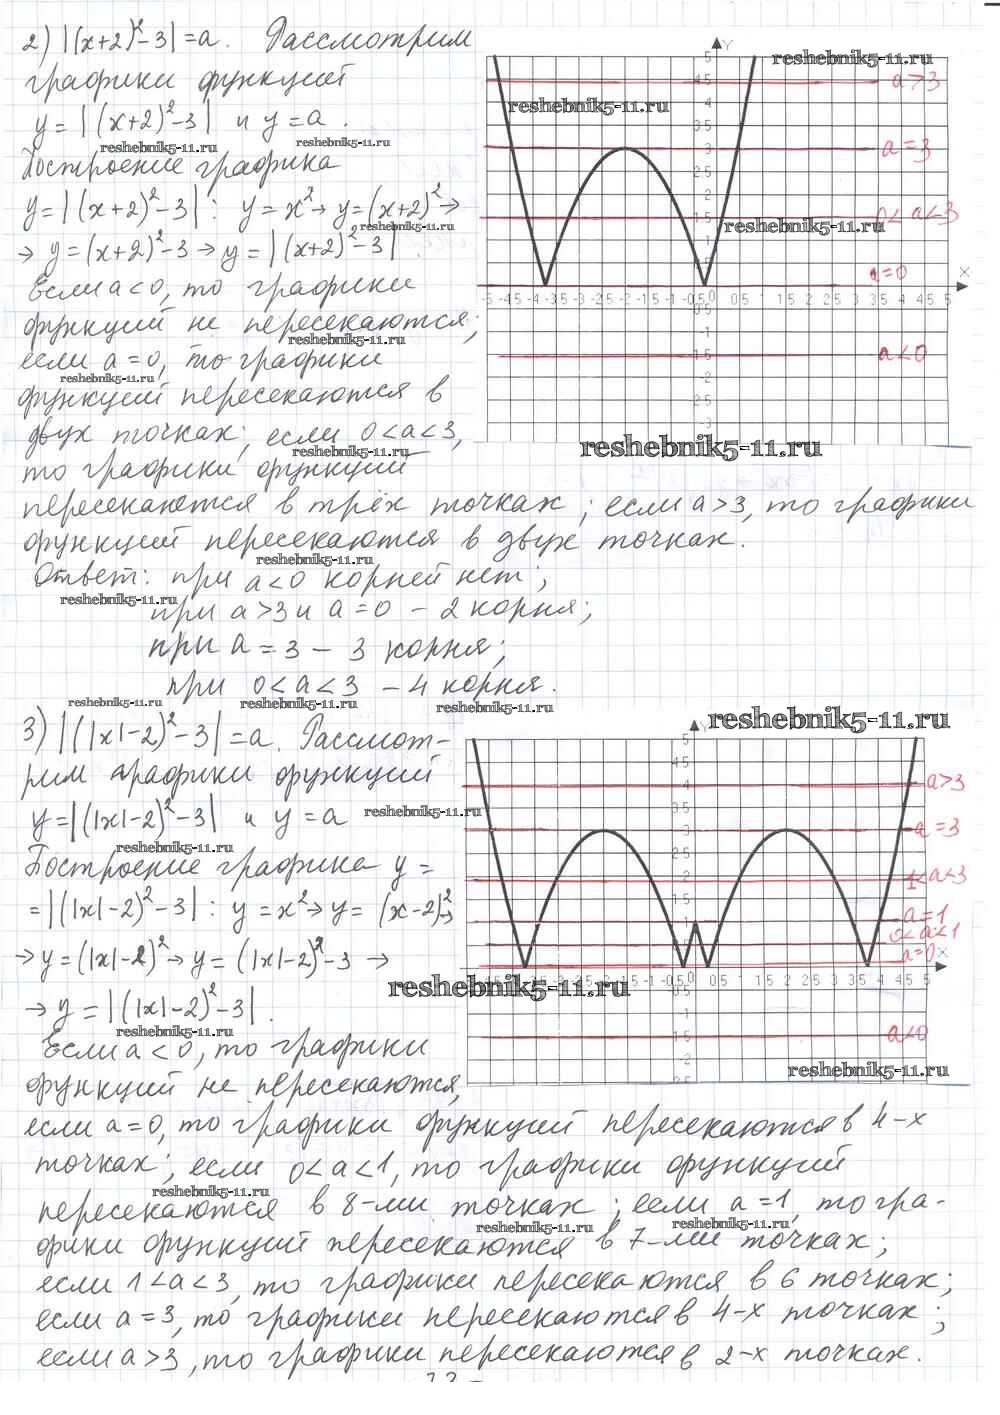 2) |(x+2)²-3|=a. Рассмотрим
графики функций
y=|(x+2)²-3| и y=a.
Построение графика
y=|(x+2)²-3|: y=x²→y=(x+2)²→
→y=(x+2)²-3→y=|(x+2)²-3|.
Если a<0, то графики
функций не пересекаются;
если a=0, то графики
функций пересекаются в
двух точках; если 0<a<3,
то графики функций
пересекаются в трёх точках; если a>3, то графики
функций пересекаются в двух точках.
Ответ: при a<0 корней нет;
при a>3 и a=0 - 2 корня;
при a=3 - 3 корня;
при 0<a<3 - 4 корня.
a>3
a=3
0<a<3
a=0
a<0
reshebnik5-11.ru
3) |(|x|-2)²-3|=a. Рассмот-
рим графики функций
y=|(|x|-2)²-3| и y=a
Построение графика y=
=|(|x|-2)²-3|: y=x²→y=(x-2)²→
→y=(|x|-2)²→y=(|x|-2)²-3→
→y=|(|x|-2)²-3|.
Если a<0, то графики
функций не пересекаются,
если a=0, то графики функций пересекаются в 4-х
точках; если 0<a<1, то графики функций
пересекаются в 8-ми точках; если a=1, то гра-
фики функций пересекаются в 7-ми точках;
если 1<a<3, то графики пересекаются в 6 точках;
если a=3, то графики пересекаются в 4-х точках;
если a>3, то графики пересекаются в 2-х точках.
a>3
a=3
1<a<3
a=1
0<a<1
a=0
a<0
reshebnik5-11.ru